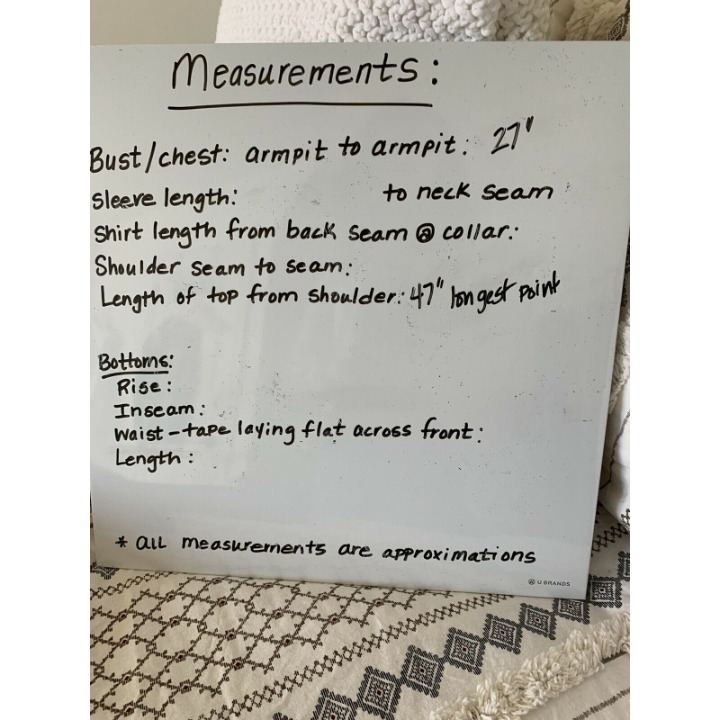 Measurements:
Bust/chest: armpit to armpit: 27"
Sleeve length: to neck seam
Shirt length from back seam @ collar:
Shoulder seam to seam:
Length of top from shoulder: 47" longest point
Bottoms:
Rise:
Inseam:
Waist-tape laying flat across front:
Length:
* all measurements are approximations
U BRANDS